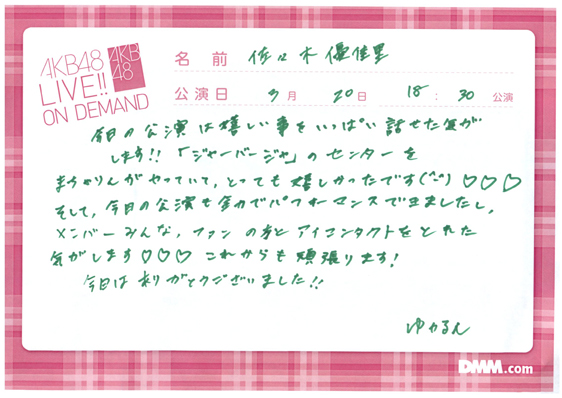 AKB48
LIVE!!
ON DEMAND
AKB
48
名 前 佐々木優佳里
公演日 3月 20日 18:30 公演
今日の公演は嬉しい事をいっぱい話せた気が
します!!「ジャーバージャ」のセンターを
まちゃりんがやっていて、とっても嬉しかったです(^-^)♡♡♡
そして、今日の公演も全力でパフォーマンスできましたし、
メンバーみんな、ファンの方とアイコンタクトをとれた
気がします♡♡♡ これからも頑張ります!
今日はありがとうございました!!
ゆかるん
DMM.com